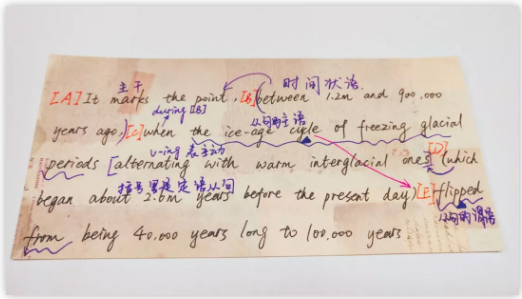 主干
时间状语
[A] It marks the point, [B] (between 1.2m and 900,000
during [B]
从句的主语
years ago,) [C] when the ice-age cycle of freezing glacial
v-ing 表主动
[D]
periods [alternating with warm, interglacial ones] (which
括号里是定语从句
began about 2.6m years before the present day) [E] flipped
从句的谓语
from being 40,000 years long to 100,000 years.